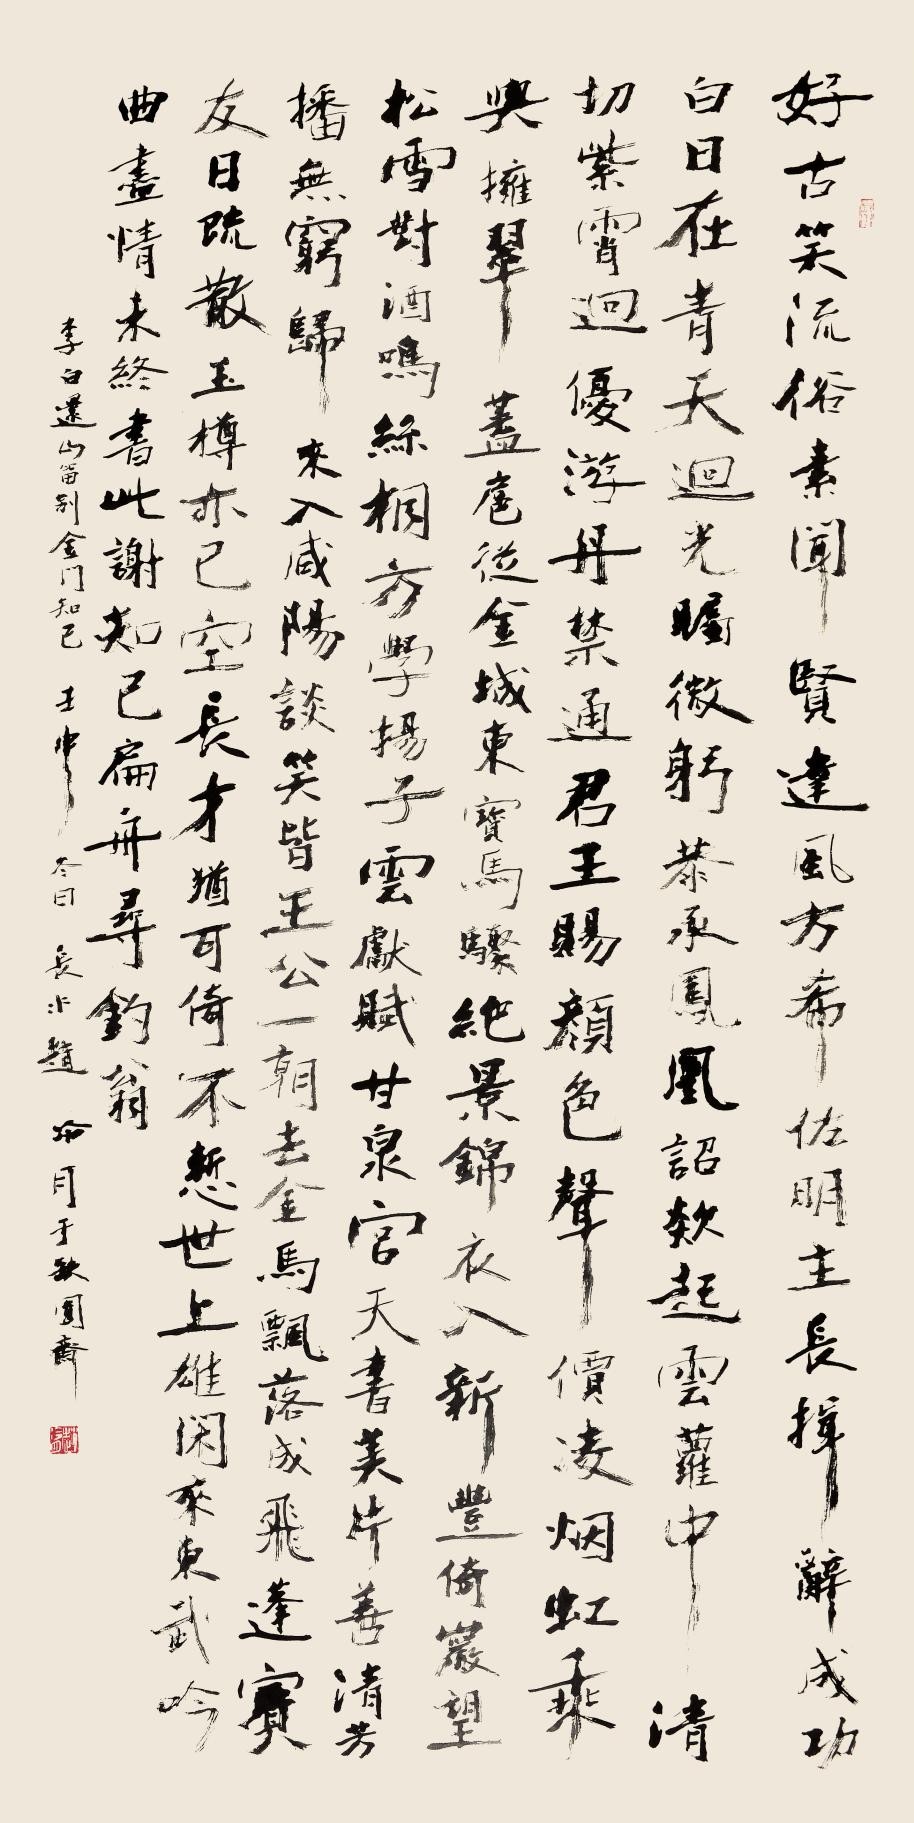 好古笑流俗素聞賢達風方希佐明主長揖辭成功
白日在青天迴光矚微躬恭承鳳凰詔欻起雲蘿中清
切紫霄迥優游丹禁通君王賜顏色聲價凌烟虹乘
輿擁翠蓋扈從金城東寶馬驟絕景錦衣入新豐倚巖望
松雪對酒鳴絲桐方學揚子雲獻賦甘泉宮天書美片善清芳
播無窮歸來入咸陽談笑皆王公一朝去金馬飄落成飛蓬賓
友日疏散玉樽亦已空長才猶可倚不慙世上雄閑來東武吟
曲盡情未終書此謝知己扁舟尋釣翁
李白還山留別金門知己 壬申冬日 長水 月于 齋